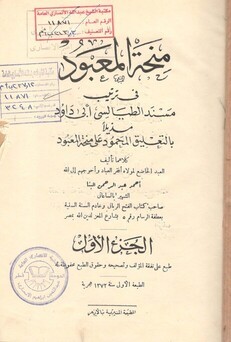 مكتبة الشيخ عبد الله الأنصاري العامة
الرقم العام
١١٨٧١
رقم التصنيف
منحة المعبود
في ترتيب
مسند الطيالسي أبي داود
مذيلا
بالتعليق المحمود على منحة المعبود
كلاهما تأليف
العبد الخاضع لمولاه أفقر العباد وأحوجهم إلى الله
أحمد عبد الرحمن البنا
الشهير بالساعاتي
صاحب كتاب الفتح الرباني وخادم السنة السنية
بعطفة الرسام رقم ٥ بشارع المعز لدين الله بمصر
الجزء الأول
طبع على نفقة المؤلف وتصحيحه وحقوق الطبع محفوظة له
الطبعة الأولى سنة ١٣٧٢ هجرية
المطبعة المنيرية بالأزهر